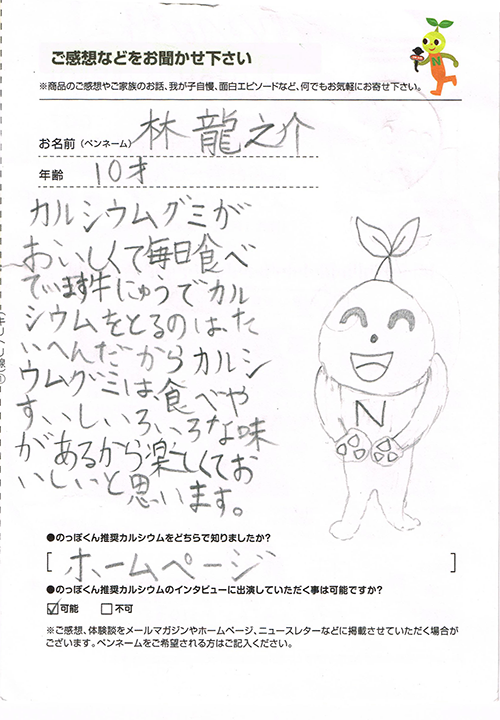 ご感想などをお聞かせ下さい
※商品のご感想やご家族のお話、我が子自慢、面白エピソードなど、何でもお気軽にお寄せ下さい。
お名前(ペンネーム) 林 龍之介
年齢 10才
カルシウムグミが
おいしくて毎日食べ
ています牛にゅうでカル
シウムをとるのは、た
いへんだからカルシ
ウムグミは、食べや
すいしいろいろな味
があるから楽しくてお
いしいと思います。
N
●のっぽくん推奨カルシウムをどちらで知りましたか?
[ ホームページ ]
●のっぽくん推奨カルシウムのインタビューに出演していただく事は可能ですか?
☑可能 □不可
※ご感想、体験談をメールマガジンやホームページ、ニュースレターなどに掲載させていただく場合が
ございます。ペンネームをご希望される方はご記入ください。